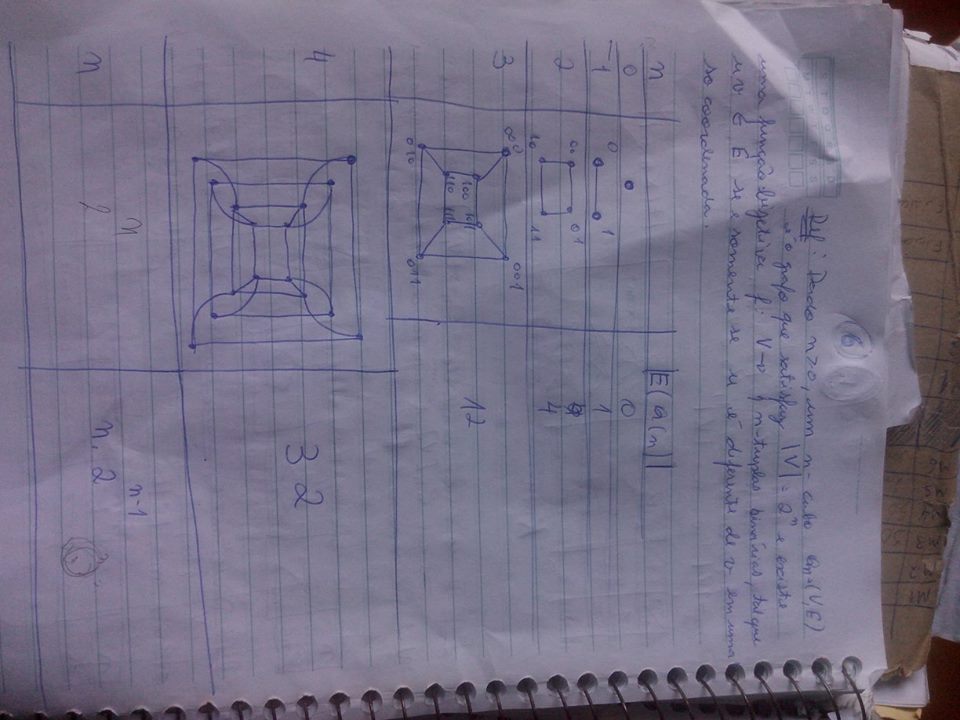 6
Def: Dado n≥0, um n-cubo Qn=(V,E)
é o grafo que satisfaz |V| = 2^n e existe
uma função bijetiva f: V→{n-tuplas binárias, tal que
uv ∈ E se e somente se u é diferente de v em uma
só coordenada.
n |E(Q(n)|
0 0
1 0 1 1
2 00 01 10 11 4
3 000 001 100 101 110 111 010 011 12
4 32
n 2^n n.2^(n-1)